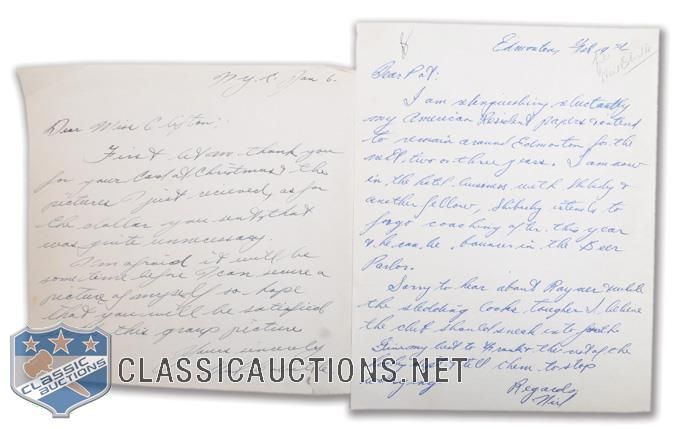 N.Y.C. Jan 6.
Dear Miss Clifton;
First let me thank you
for your card at Christmas & the
pictures I just recieved, as for
the dollar you sent, that
was quite unnecessary.
I'm afraid it will be
some time before I can secure a
picture of myself so hope
that you will be satisfied
this group picture
Yours sincerely
Edmonton, Feb
Dear Pat:
I am relinquishing, reluctantly
my American Resident papers & intend
to remain around Edmonton for the
next two or three years. I am now
in the hotel business with Shibicky &
another fellow, Shibicky intends to
forgo coaching after this year
& he can be bouncer in the Beer
Parlor.
Sorry to hear about Rayner
the sledding looks tougher I believe
the club should sneak into fourth
Give my best to Frank & the rest of the
tell them to stop
Regards
CLASSIC
AUCTIONS
CLASSICAUCTIONS.NET